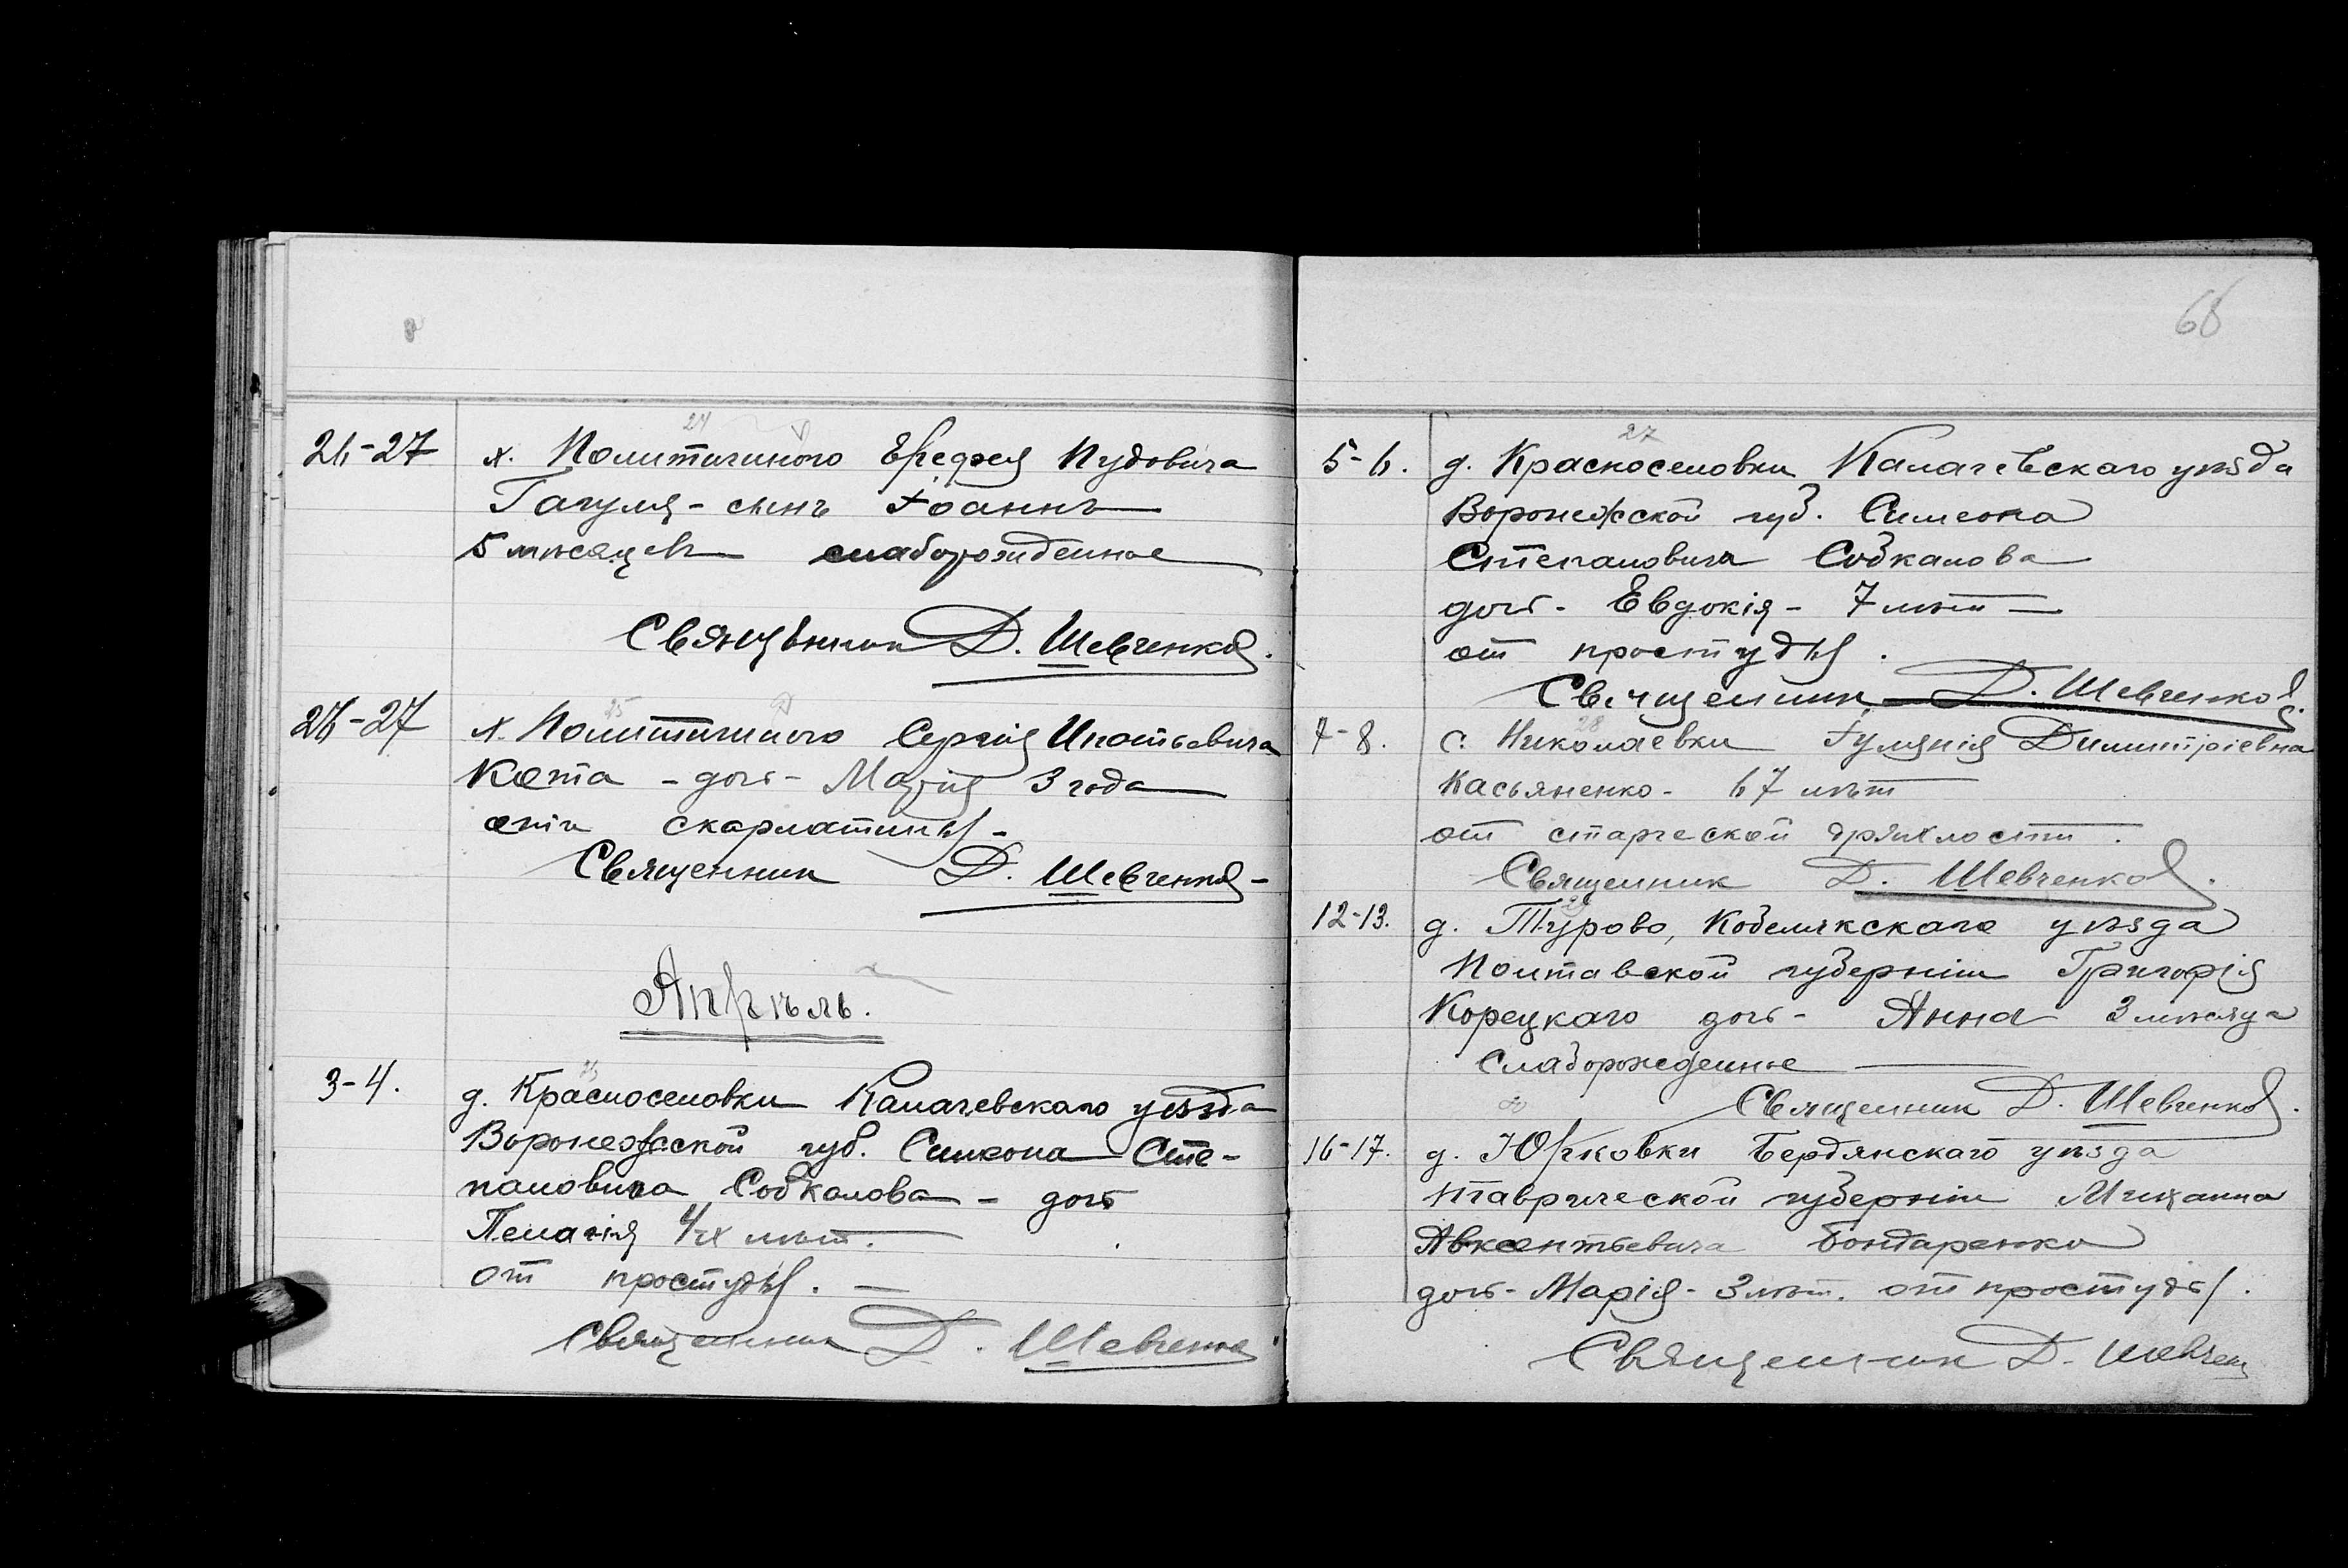 26-27 х. Политичного Ерефея Пудовича
Гагуля - сынъ Іоаннъ
5 мѣсяцевъ слаборожденное
Священник Д. Шевченко.
26-27 х. Политичного Сергія Ипатьевича
Кота - дочь - Марія 3 года
отъ скарлатины -
Священник Д. Шевченко -
Апрѣль.
3-4. д. Красноселовки Калачевскаго уѣзда
Воронежской губ. Симеона Сте-
пановича Собкалова - дочь
Пелагія 4х лѣт.
от простуды. -
Священник Д. Шевченко
68
27
5-6. д. Красноселовки Калачевскаго уѣзда
Воронежской губ. Симеона
Степановича Собкалова
дочь - Евдокія - 7 лѣт -
от простуды.
Священник Д. Шевченко
28
7-8. с. Николаевки Іуліянія Димитріевна
Касьяненко - 67 лѣт
от старческой дряхлости.
Священник Д. Шевченко.
12-13. д. Турово, Кобелякскаго уѣзда
Полтавской губерніи Григорія
Корецкаго дочь - Анна 3 мѣсяца
Слаборожденное
Священник Д. Шевченко.
16-17. д. Юрковки Бердянскаго уѣзда
Таврической губерніи Михаила
Авксентьевича Бондаренко
дочь - Марія - 3 лѣт. от простуды.
Священник Д. Шевченко